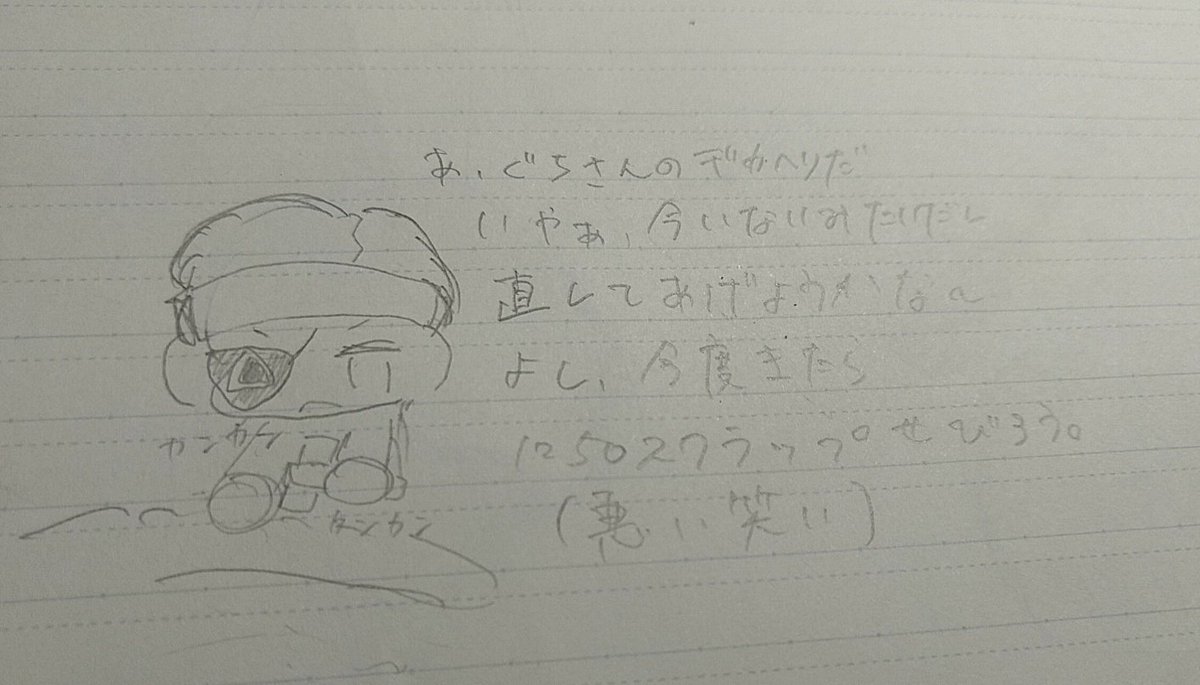 あ、ぐちさんのデカヘリだ
いやぁ、今いないみたいだし
直してあげようかな~
よし、今度きたら
1250スクラップせびろう。
(悪い笑い)
カンカン
カンカン